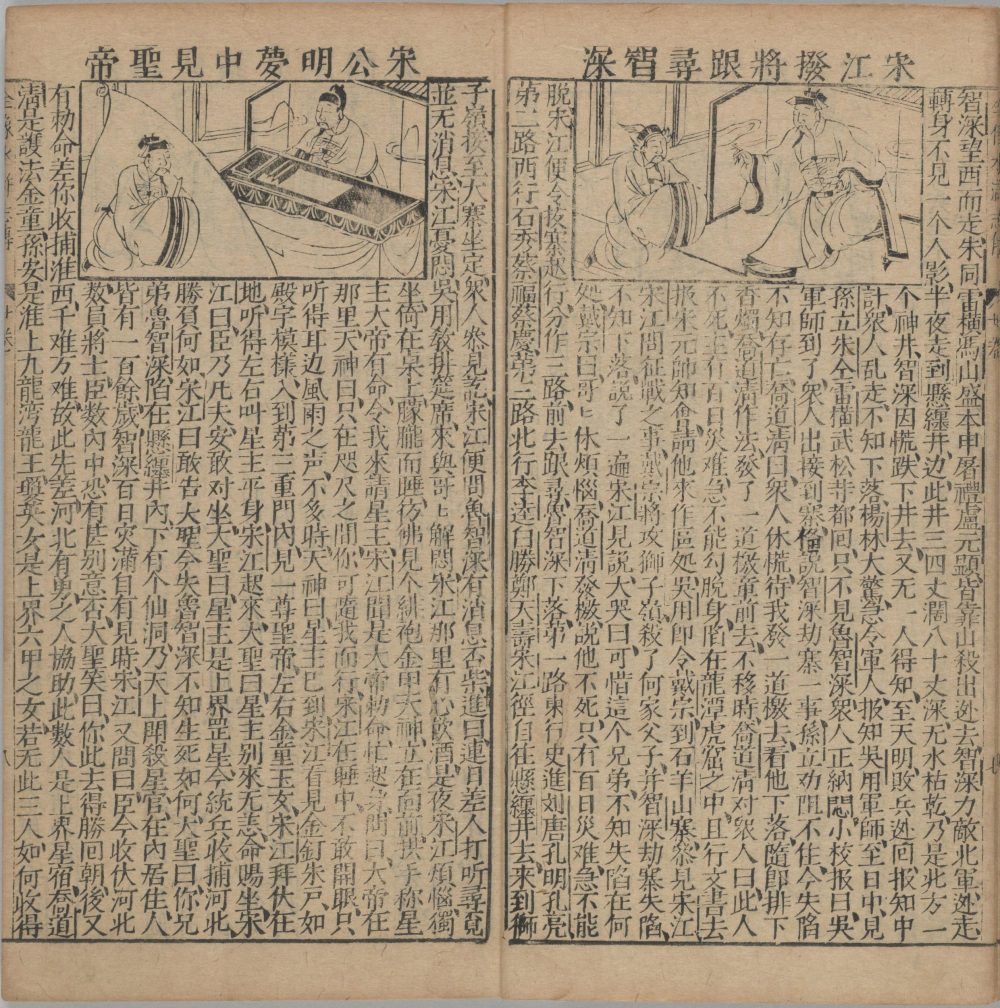 宋江撥將跟尋智深
智深望西而走朱同雷橫馮山盛本申屠禮盧元顯皆靠山殺出迯去智深力敵北軍迯走
轉身不見一个人影半夜走到縣纏井边此井三四丈濶八十丈深无水枯乾乃是北方一
个神井智深因慌跌下井去又无一人得知至天明敗兵迯回报知中
計衆人乱走不知下落楊林大驚急令軍人报知吳用軍師至日中見
孫立朱仝雷横武松䓁都囘只不見魯智深衆人正納悶小校报曰吳
軍師到了衆人出接到寨備說智深劫寨一事孫立劝阻不住今失陷
不知存亡喬道清曰衆人休慌待我發一道檄去看他下落隨即排下
香燭喬道清作法發了一道檄章前去不移時喬道清对衆人曰此人
不死主有百日災难急不能勾脫身陷在龍潭虎窟之中且行文書去
报宋元帥知會請他來作區処吳用即令戴宗到石羊山寨叅見宋江
宋江問征戰之事戴宗將攻獅子嶺殺了何家父子并智深劫寨失陷
不知下落說了一遍宋江見說大哭曰可惜這个兄弟不知失陷在何
処戴宗曰哥ヒ休煩惱喬道清發檄說他不死只有百日災难急不能
脫宋江便令拔寨起行分作三路前去跟尋魯智深下落第一路東行史進刘唐孔明孔亮
第二路西行石秀蔡福蔡慶第三路北行李逵白勝鄭天壽宋江徑自往縣纏井去來到獅
宋公明夢中見聖帝
子嶺接至大寨坐定衆人叅見訖宋江便問魯智深有消息否柴進曰連日差人打听尋覓
並无消息宋江憂悶吳用教排筵席來與哥ヒ解悶宋江那里有心飲酒是夜宋江煩惱獨
坐倚在桌上朦朧而睡彷彿見个緋袍金甲大神立在面前拱手称星
主大帝有命令我來請星主宋江聞是大帝勅命忙起身問曰大帝在
那里天神曰只在咫尺之間你可隨我而行宋江在睡中不敢開眼只
听得耳边風雨之声不多時天神曰星主已到宋江看見金釘朱戸如
殿宇模樣入到第三重門內見一尊聖帝左右金童玉女宋江拜伏在
地听得左右叫星主平身宋江起來大聖曰星主别來无恙命賜坐宋
江曰臣乃凡夫安敢对坐大聖曰星主是上界罡星今統兵收捕河北
勝負何如宋江曰敢告大聖今失魯智深不知生死如何大聖曰你兄
弟魯智深陷在縣纏井內下有个仙洞乃天上閗殺星官在內居住人
皆有一百餘歲智深百日災滿自有見時宋江又問曰臣今收伏河北
数員將士臣数內中恐有甚别意否大聖笑曰你此去得勝回朝後又
有勅命差你收捕淮西千难万难故此先差河北有勇之人協助此數人是上界星宿喬道
清是護法金童孫安是淮上九龍湾龍王瓊英女是上界六甲之女若无此三人如何收得